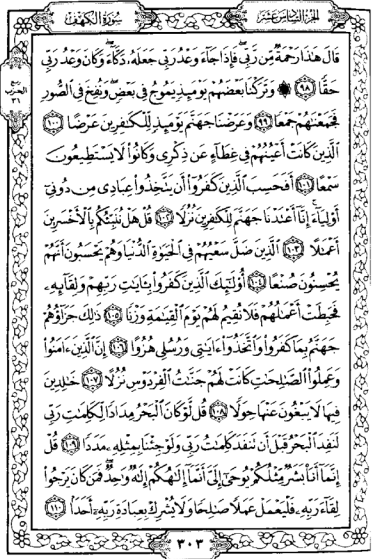 سُورَةُ الكَهْفِ
الجُزْءُ السَّادِسَ عَشَرَ
ربع
الحزب
٣١
قَالَ هَٰذَا رَحْمَةٌ مِّن رَّبِّي فَإِذَا جَآءَ وَعْدُ رَبِّي جَعَلَهُۥ دَكَّآءَ وَكَانَ وَعْدُ رَبِّي
حَقًّا ٩٨ ۞ وَتَرَكْنَا بَعْضَهُمْ يَوْمَئِذٍ يَمُوجُ فِي بَعْضٍ وَنُفِخَ فِي الصُّورِ
فَجَمَعْنَٰهُمْ جَمْعًا ٩٩ وَعَرَضْنَا جَهَنَّمَ يَوْمَئِذٍ لِّلْكَٰفِرِينَ عَرْضًا ١٠٠
الَّذِينَ كَانَتْ أَعْيُنُهُمْ فِي غِطَآءٍ عَن ذِكْرِي وَكَانُوا لَا يَسْتَطِيعُونَ
سَمْعًا ١٠١ أَفَحَسِبَ الَّذِينَ كَفَرُوٓا أَن يَتَّخِذُوا عِبَادِي مِن دُونِيٓ
أَوْلِيَآءَ إِنَّآ أَعْتَدْنَا جَهَنَّمَ لِلْكَٰفِرِينَ نُزُلًا ١٠٢ قُلْ هَلْ نُنَبِّئُكُم بِالْأَخْسَرِينَ
أَعْمَٰلًا ١٠٣ الَّذِينَ ضَلَّ سَعْيُهُمْ فِي الْحَيَوٰةِ الدُّنْيَا وَهُمْ يَحْسَبُونَ أَنَّهُمْ
يُحْسِنُونَ صُنْعًا ١٠٤ أُولَٰٓئِكَ الَّذِينَ كَفَرُوا بِـَٔايَٰتِ رَبِّهِمْ وَلِقَآئِهِۦ
فَحَبِطَتْ أَعْمَٰلُهُمْ فَلَا نُقِيمُ لَهُمْ يَوْمَ الْقِيَٰمَةِ وَزْنًا ١٠٥ ذَٰلِكَ جَزَآؤُهُمْ
جَهَنَّمُ بِمَا كَفَرُوا وَاتَّخَذُوٓا ءَايَٰتِي وَرُسُلِي هُزُوًا ١٠٦ إِنَّ الَّذِينَ ءَامَنُوا
وَعَمِلُوا الصَّٰلِحَٰتِ كَانَتْ لَهُمْ جَنَّٰتُ الْفِرْدَوْسِ نُزُلًا ١٠٧ خَٰلِدِينَ
فِيهَا لَا يَبْغُونَ عَنْهَا حِوَلًا ١٠٨ قُل لَّوْ كَانَ الْبَحْرُ مِدَادًا لِّكَلِمَٰتِ رَبِّي
لَنَفِدَ الْبَحْرُ قَبْلَ أَن تَنفَدَ كَلِمَٰتُ رَبِّي وَلَوْ جِئْنَا بِمِثْلِهِۦ مَدَدًا ١٠٩ قُلْ
إِنَّمَآ أَنَا۠ بَشَرٌ مِّثْلُكُمْ يُوحَىٰٓ إِلَيَّ أَنَّمَآ إِلَٰهُكُمْ إِلَٰهٌ وَٰحِدٌ فَمَن كَانَ يَرْجُوا
لِقَآءَ رَبِّهِۦ فَلْيَعْمَلْ عَمَلًا صَٰلِحًا وَلَا يُشْرِكْ بِعِبَادَةِ رَبِّهِۦٓ أَحَدًا ١١٠
٣٠٣